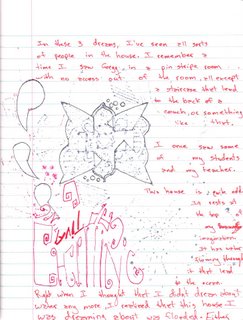 In these 3 dreams, I've seen all sorts
of people in the house. I remember a
time I saw Gregg, in a pin stripe room
with no access out of the room, all except
a staircase that lead
to the back of a
couch, or something
like that.
I once saw some
of my students
and my teacher.
This house is quite odd
it rests at
the top of
my
imagination
It has water
flowing through
it that lead
to the ocean.
Right when I thought that I didn't dream about
water any more, I realized that this house I
was dreaming about was flooded. Either